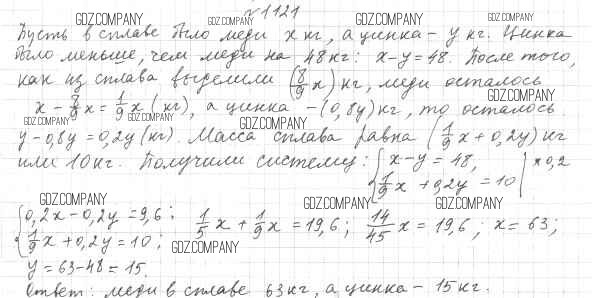 №1121
GDZ.COMPANY GDZ.COMPANY GDZ.COMPANY GDZ.COMPANY
Пусть в сплаве было меди x кг, а цинка - y кг. Цинка
было меньше, чем меди на 48 кг: x-y=48. После того,
как из сплава выделили (8/9 x) кг, меди осталось
GDZ.COMPANY
x - 8/9 x = 1/9 x (кг), а цинка - (0,8y) кг, то осталось
GDZ.COMPANY GDZ.COMPANY GDZ.COMPANY
y-0,8y=0,2y (кг). Масса сплава равна (1/9 x + 0,2y) кг
или 10 кг. Получили систему: { x-y=48, | ×0,2
1/9 x + 0,2y = 10
GDZ.COMPANY GDZ.COMPANY GDZ.COMPANY
{ 0,2x-0,2y=9,6; 1/5 x + 1/9 x = 19,6; 14/45 x = 19,6; x=63;
1/9 x + 0,2y = 10; GDZ.COMPANY
y=63-48=15.
Ответ: меди в сплаве 63 кг, а цинка - 15 кг.